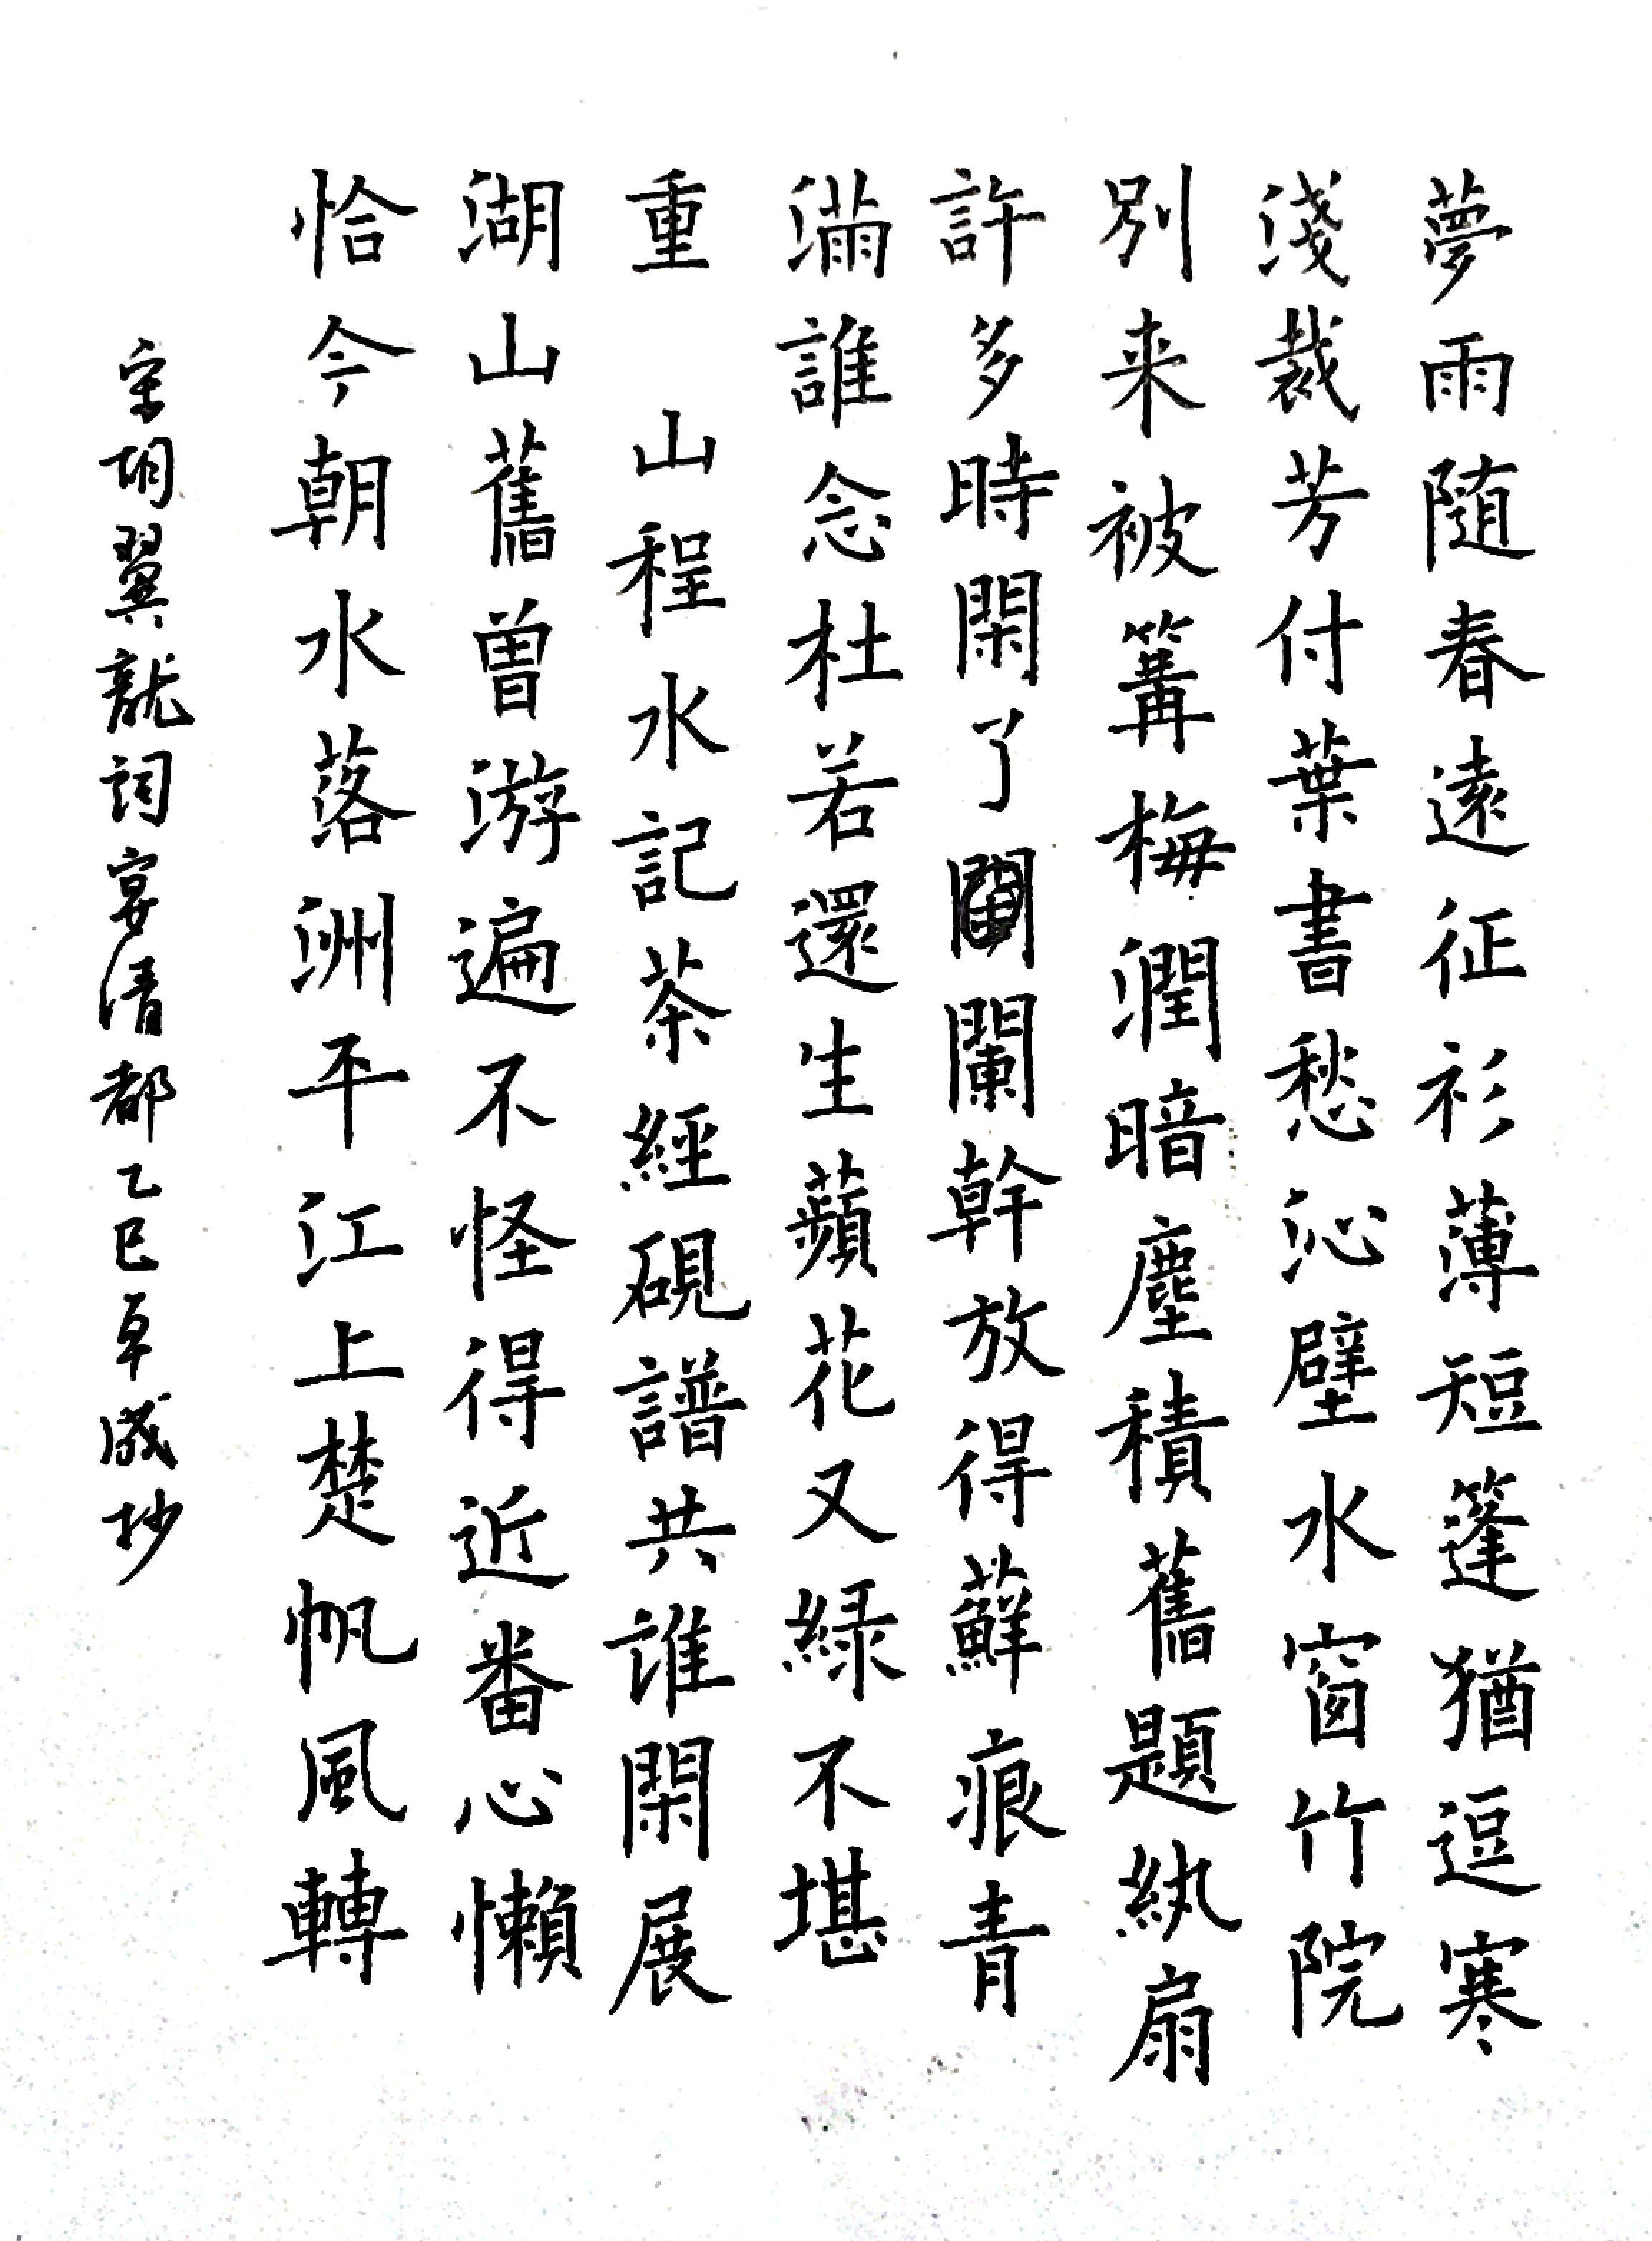 夢雨随春遠征衫薄短篷猶逗寒
淺裁芳付葉書愁沁壁水窗竹院
別来被篝梅潤暗塵積舊題紈扇
許多時閑了闌幹放得蘚痕青
滿誰念杜若還生蘋花又緑不堪
重 山程水記茶經硯譜共谁閑展
湖山舊曾游遍不怪得近番心懶
恰今朝水落洲平江上楚帆風轉
宋胡翼龍詞宴清都乙巳卓成抄